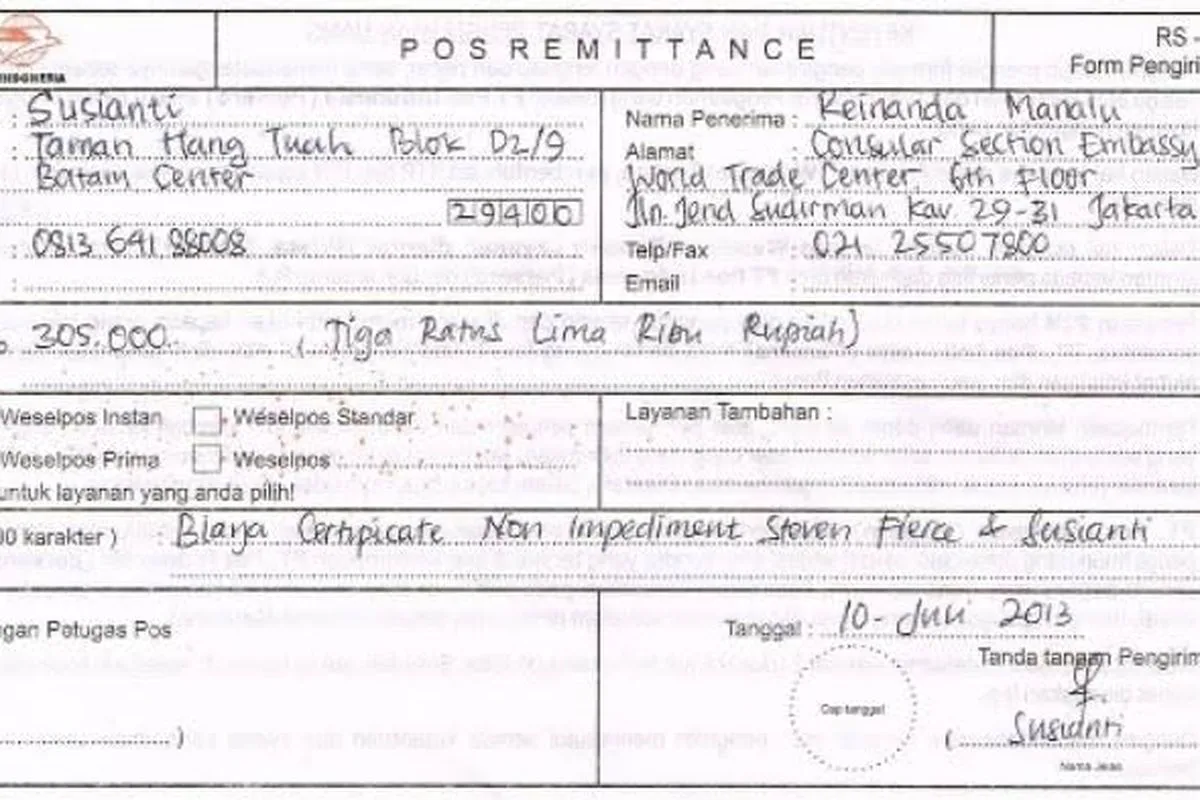 POS REMITTANCE
RS -
Form Pengiri
: Susianti
: Taman Hang Tuah Blok D2/9
Batam Center
29400
0813 641 88008
:
Nama Penerima : Reinanda Manalu
Alamat : Consular Section Embassy
World Trade Center, 6th Floor
Jln. Jend Sudirman Kav. 29-31 Jakarta
Telp/Fax : 021 25507800
Email :
305.000 ( Tiga Ratus Lima Ribu Rupiah)
Weselpos Instan Weselpos Standar
Weselpos Prima Weselpos
untuk layanan yang anda pilih!
Layanan Tambahan :
00 karakter ) : Biaya Certificate Non Impediment Steven Pierce & Susianti
ngan Petugas Pos
)
Tanggal : 10 Juni 2013
Tanda tangan Pengirim
Cap tanggal
( Susianti
Nama Jelas